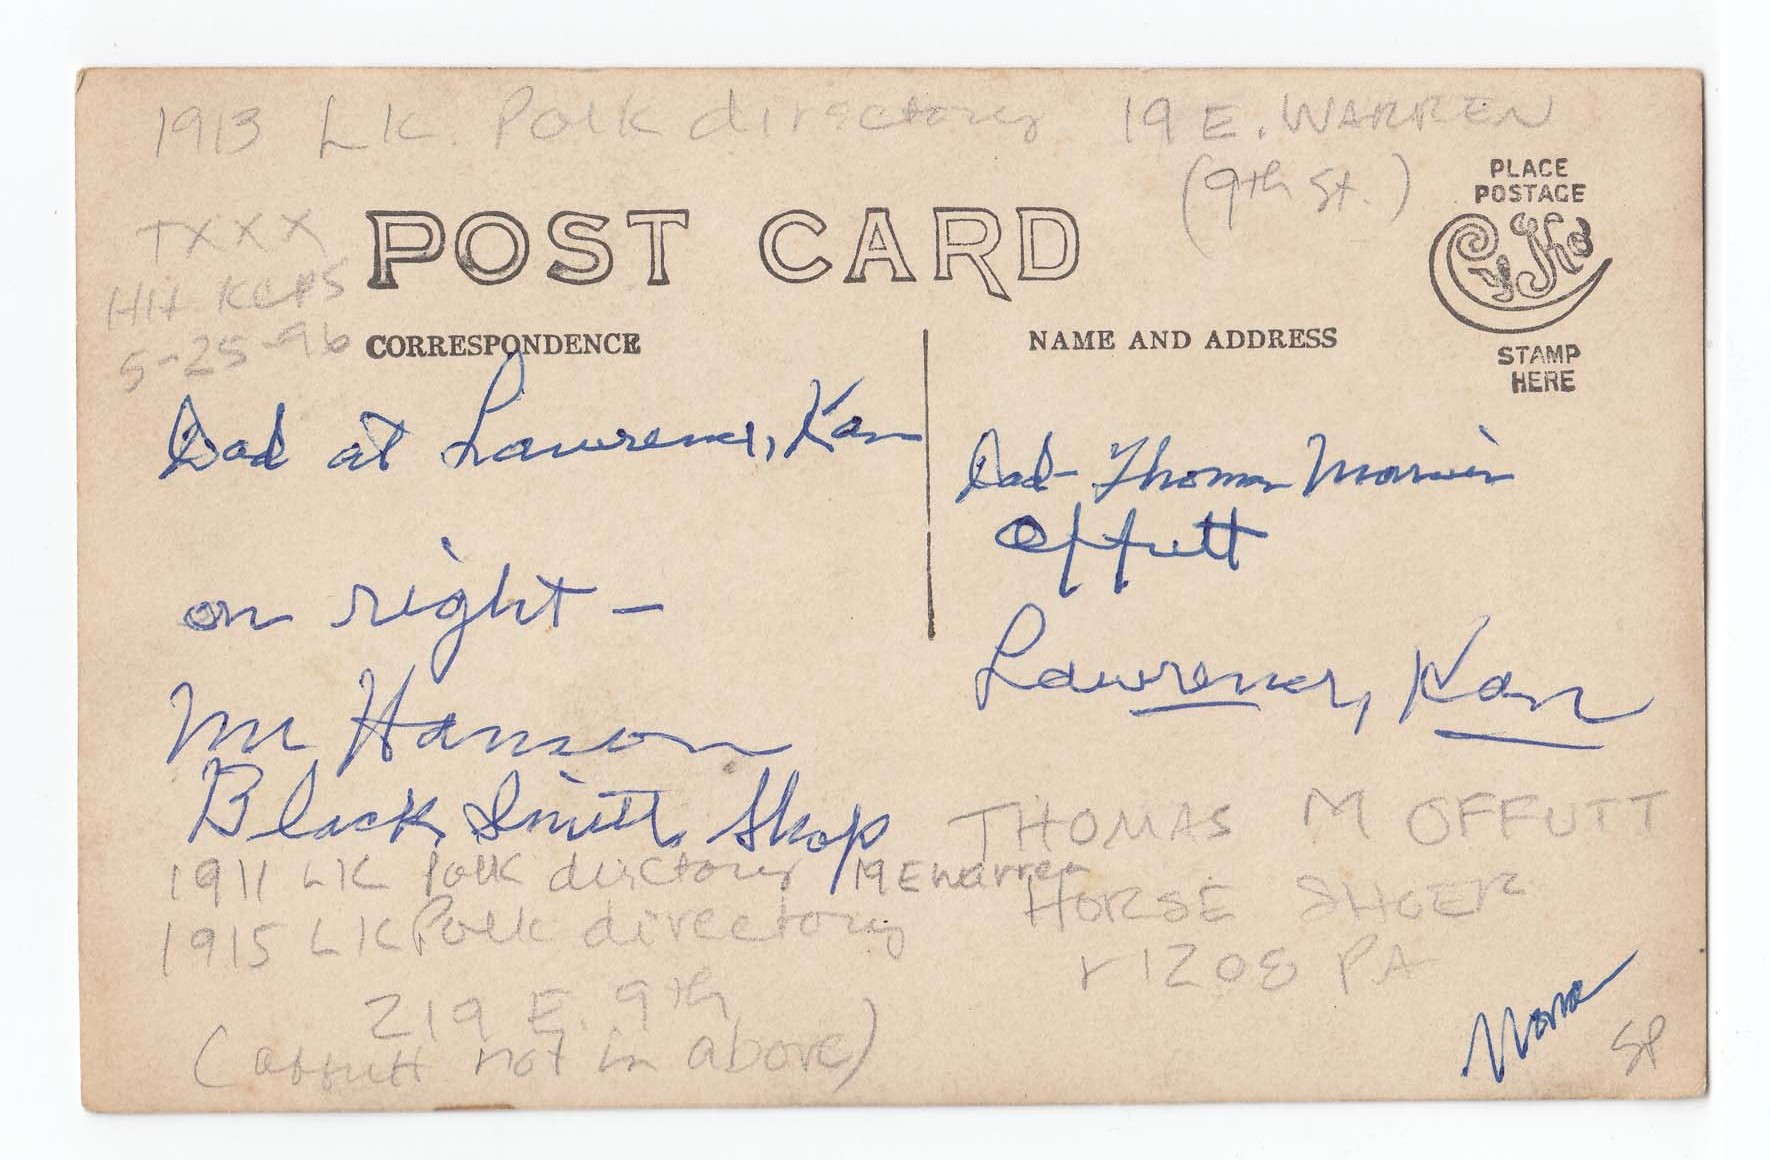 1913 LK. Polk directory 19 E. WARREN
(9th St.)
PLACE
POSTAGE
TXXX
POST CARD
CYKO
HH KCPS
5-25-96
CORRESPONDENCE
NAME AND ADDRESS
STAMP
HERE
Dad at Lawrence, Kan
on right -
Mr Hanson
Black Smith Shop
Dad - Thomas Marvin
Offutt
Lawrence, Kan
THOMAS M OFFUTT
HORSE SHOER
r 1208 PA
1911 LK Polk directory 19 E warren
1915 LK Polk directory
219 E. 9th
(offutt not in above)
SP